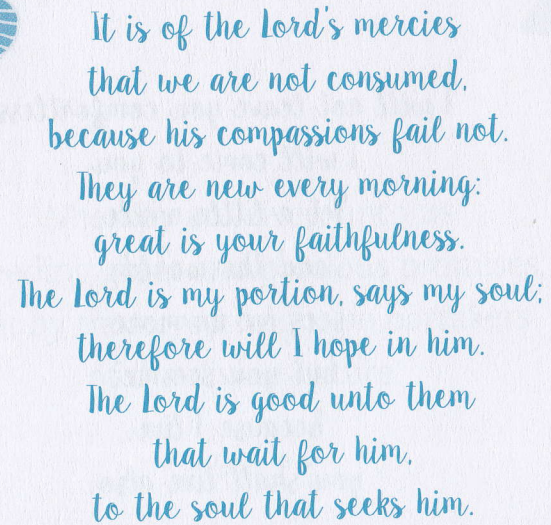 It is of the Lord's mercies
that we are not consumed,
because his compassions fail not.
They are new every morning:
great is your faithfulness.
The Lord is my portion, says my soul;
therefore will I hope in him.
The Lord is good unto them
that wait for him,
to the soul that seeks him.